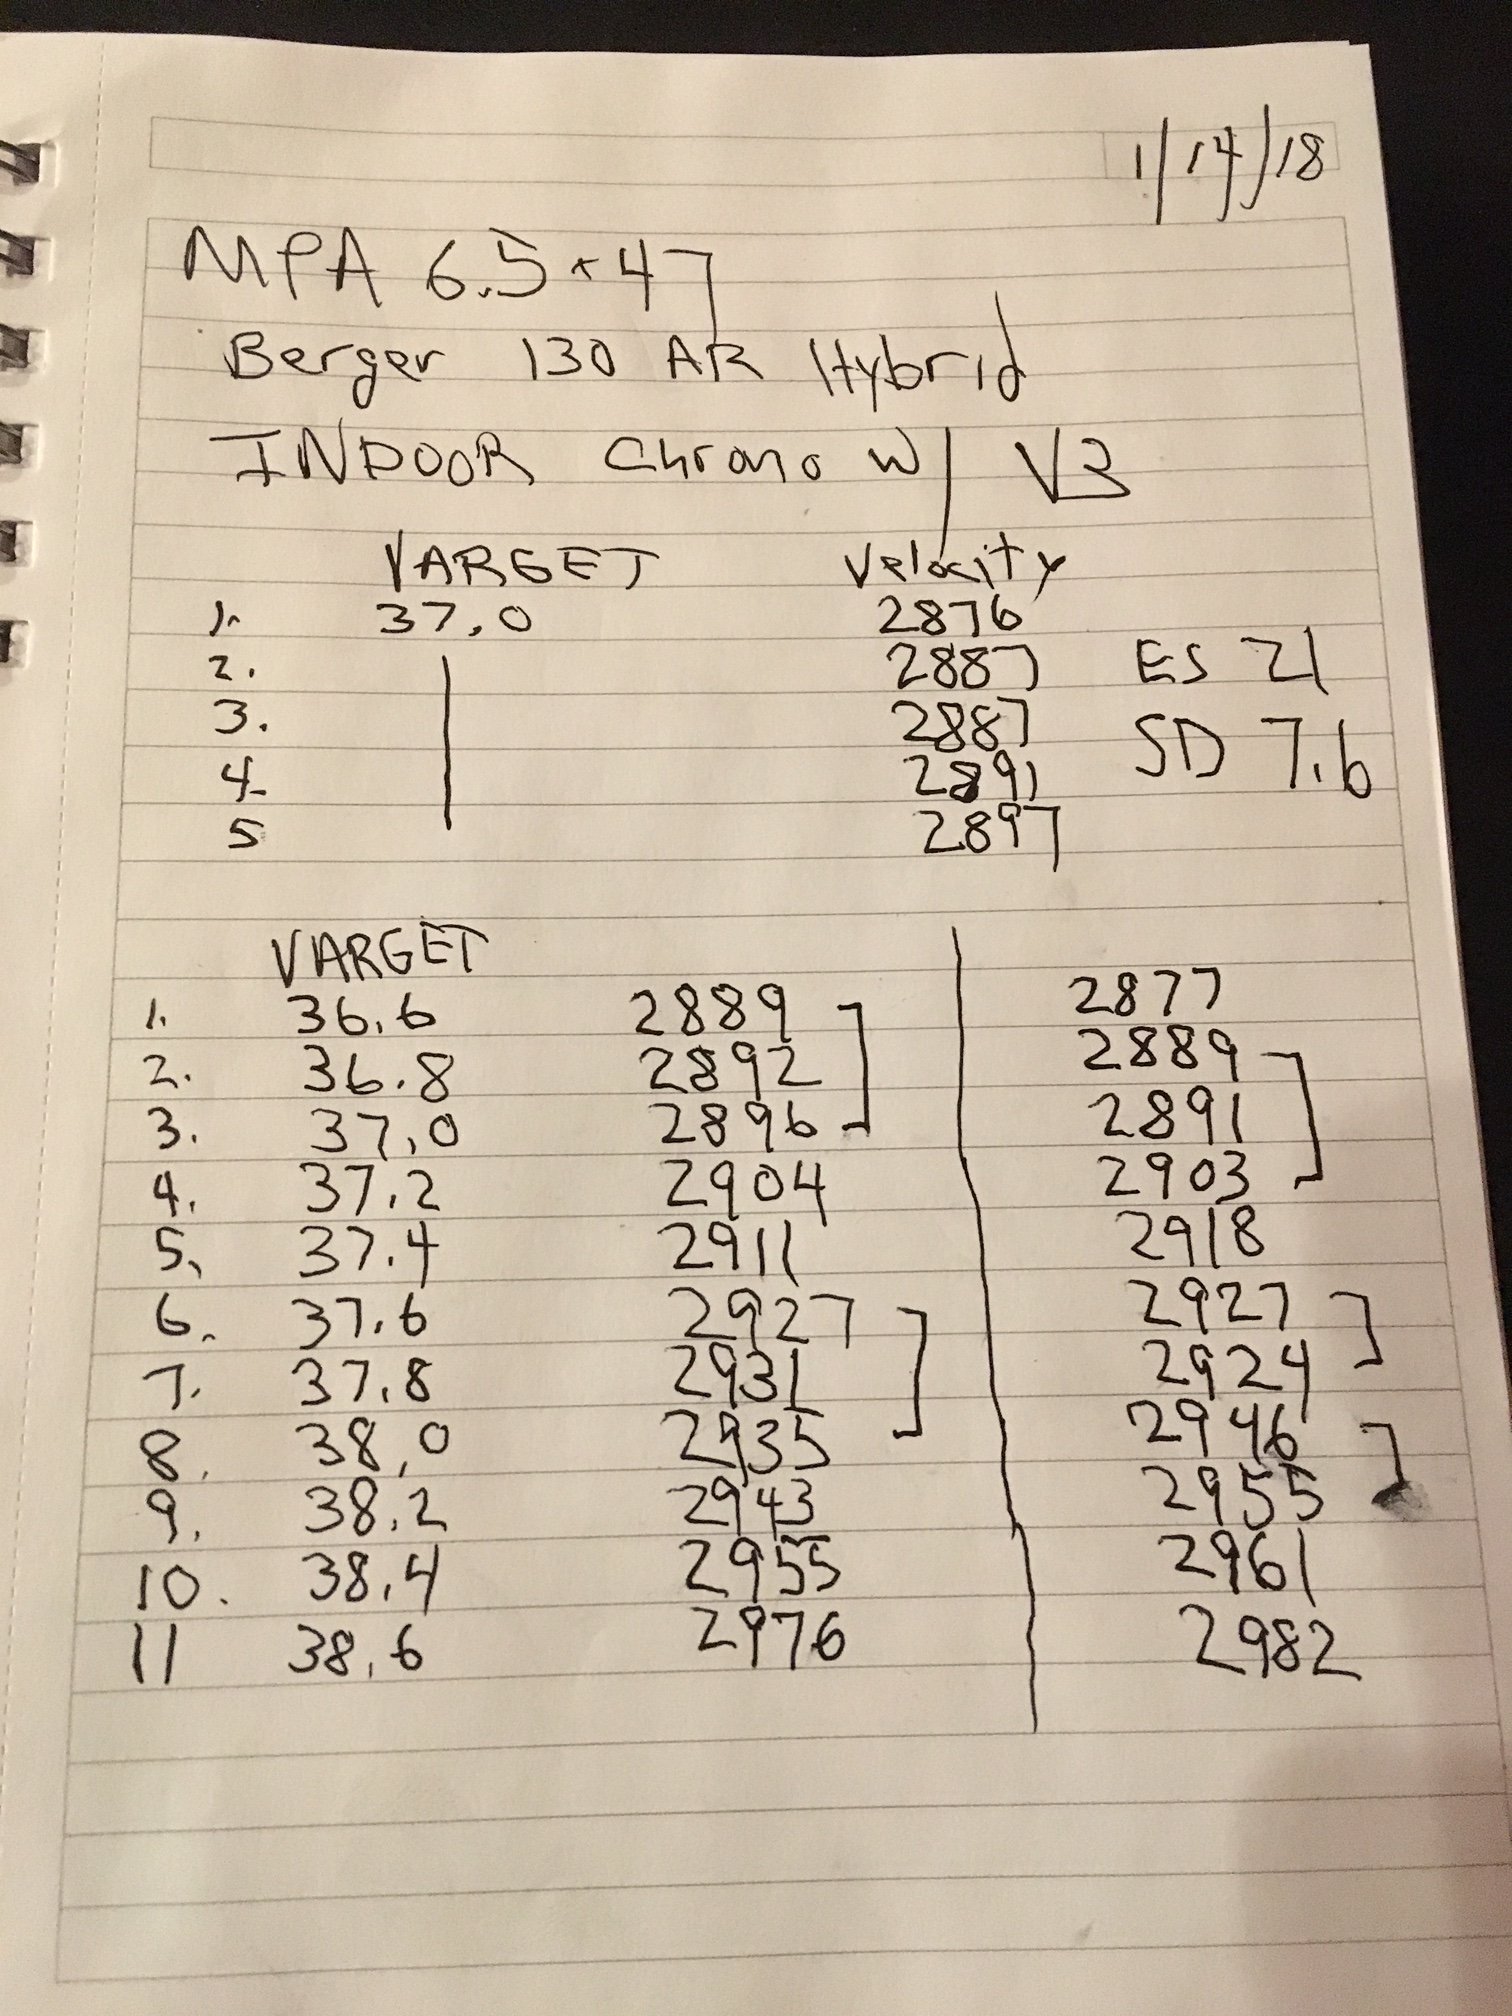 1/14/18
MPA 6.5x47
Berger 130 AR Hybrid
INDOOR Chrono w/ V3
VARGET Velocity
1. 37.0 2876
2. 2887 ES 21
3. 2887 SD 7.6
4. 2891
5 2897
VARGET
1. 36.6 2889 2877
2. 36.8 2892 2889
3. 37.0 2896 2891
4. 37.2 2904 2903
5. 37.4 2911 2918
6. 37.6 2927 2927
7. 37.8 2931 2924
8. 38.0 2935 2946
9. 38.2 2943 2955
10. 38.4 2955 2961
11 38.6 2976 2982